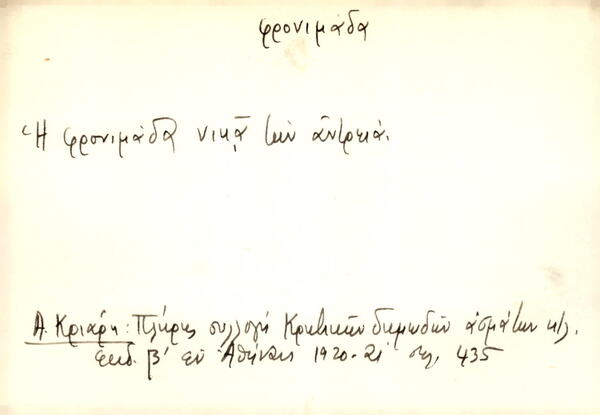 φρονιμάδα
Ἡ φρονιμάδα νικᾷ τὴν ἀντρειά.
Α. Κριάρη: Πλήρης συλλογὴ Κρητικῶν δημωδῶν ᾀσμάτων κτλ.
ἔκδ. β' ἐν Ἀθήναις 1920-21 σελ. 435